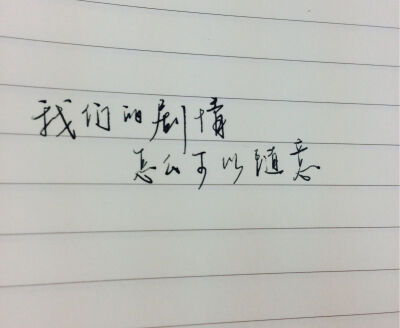 我们的剧情
怎么可以随意